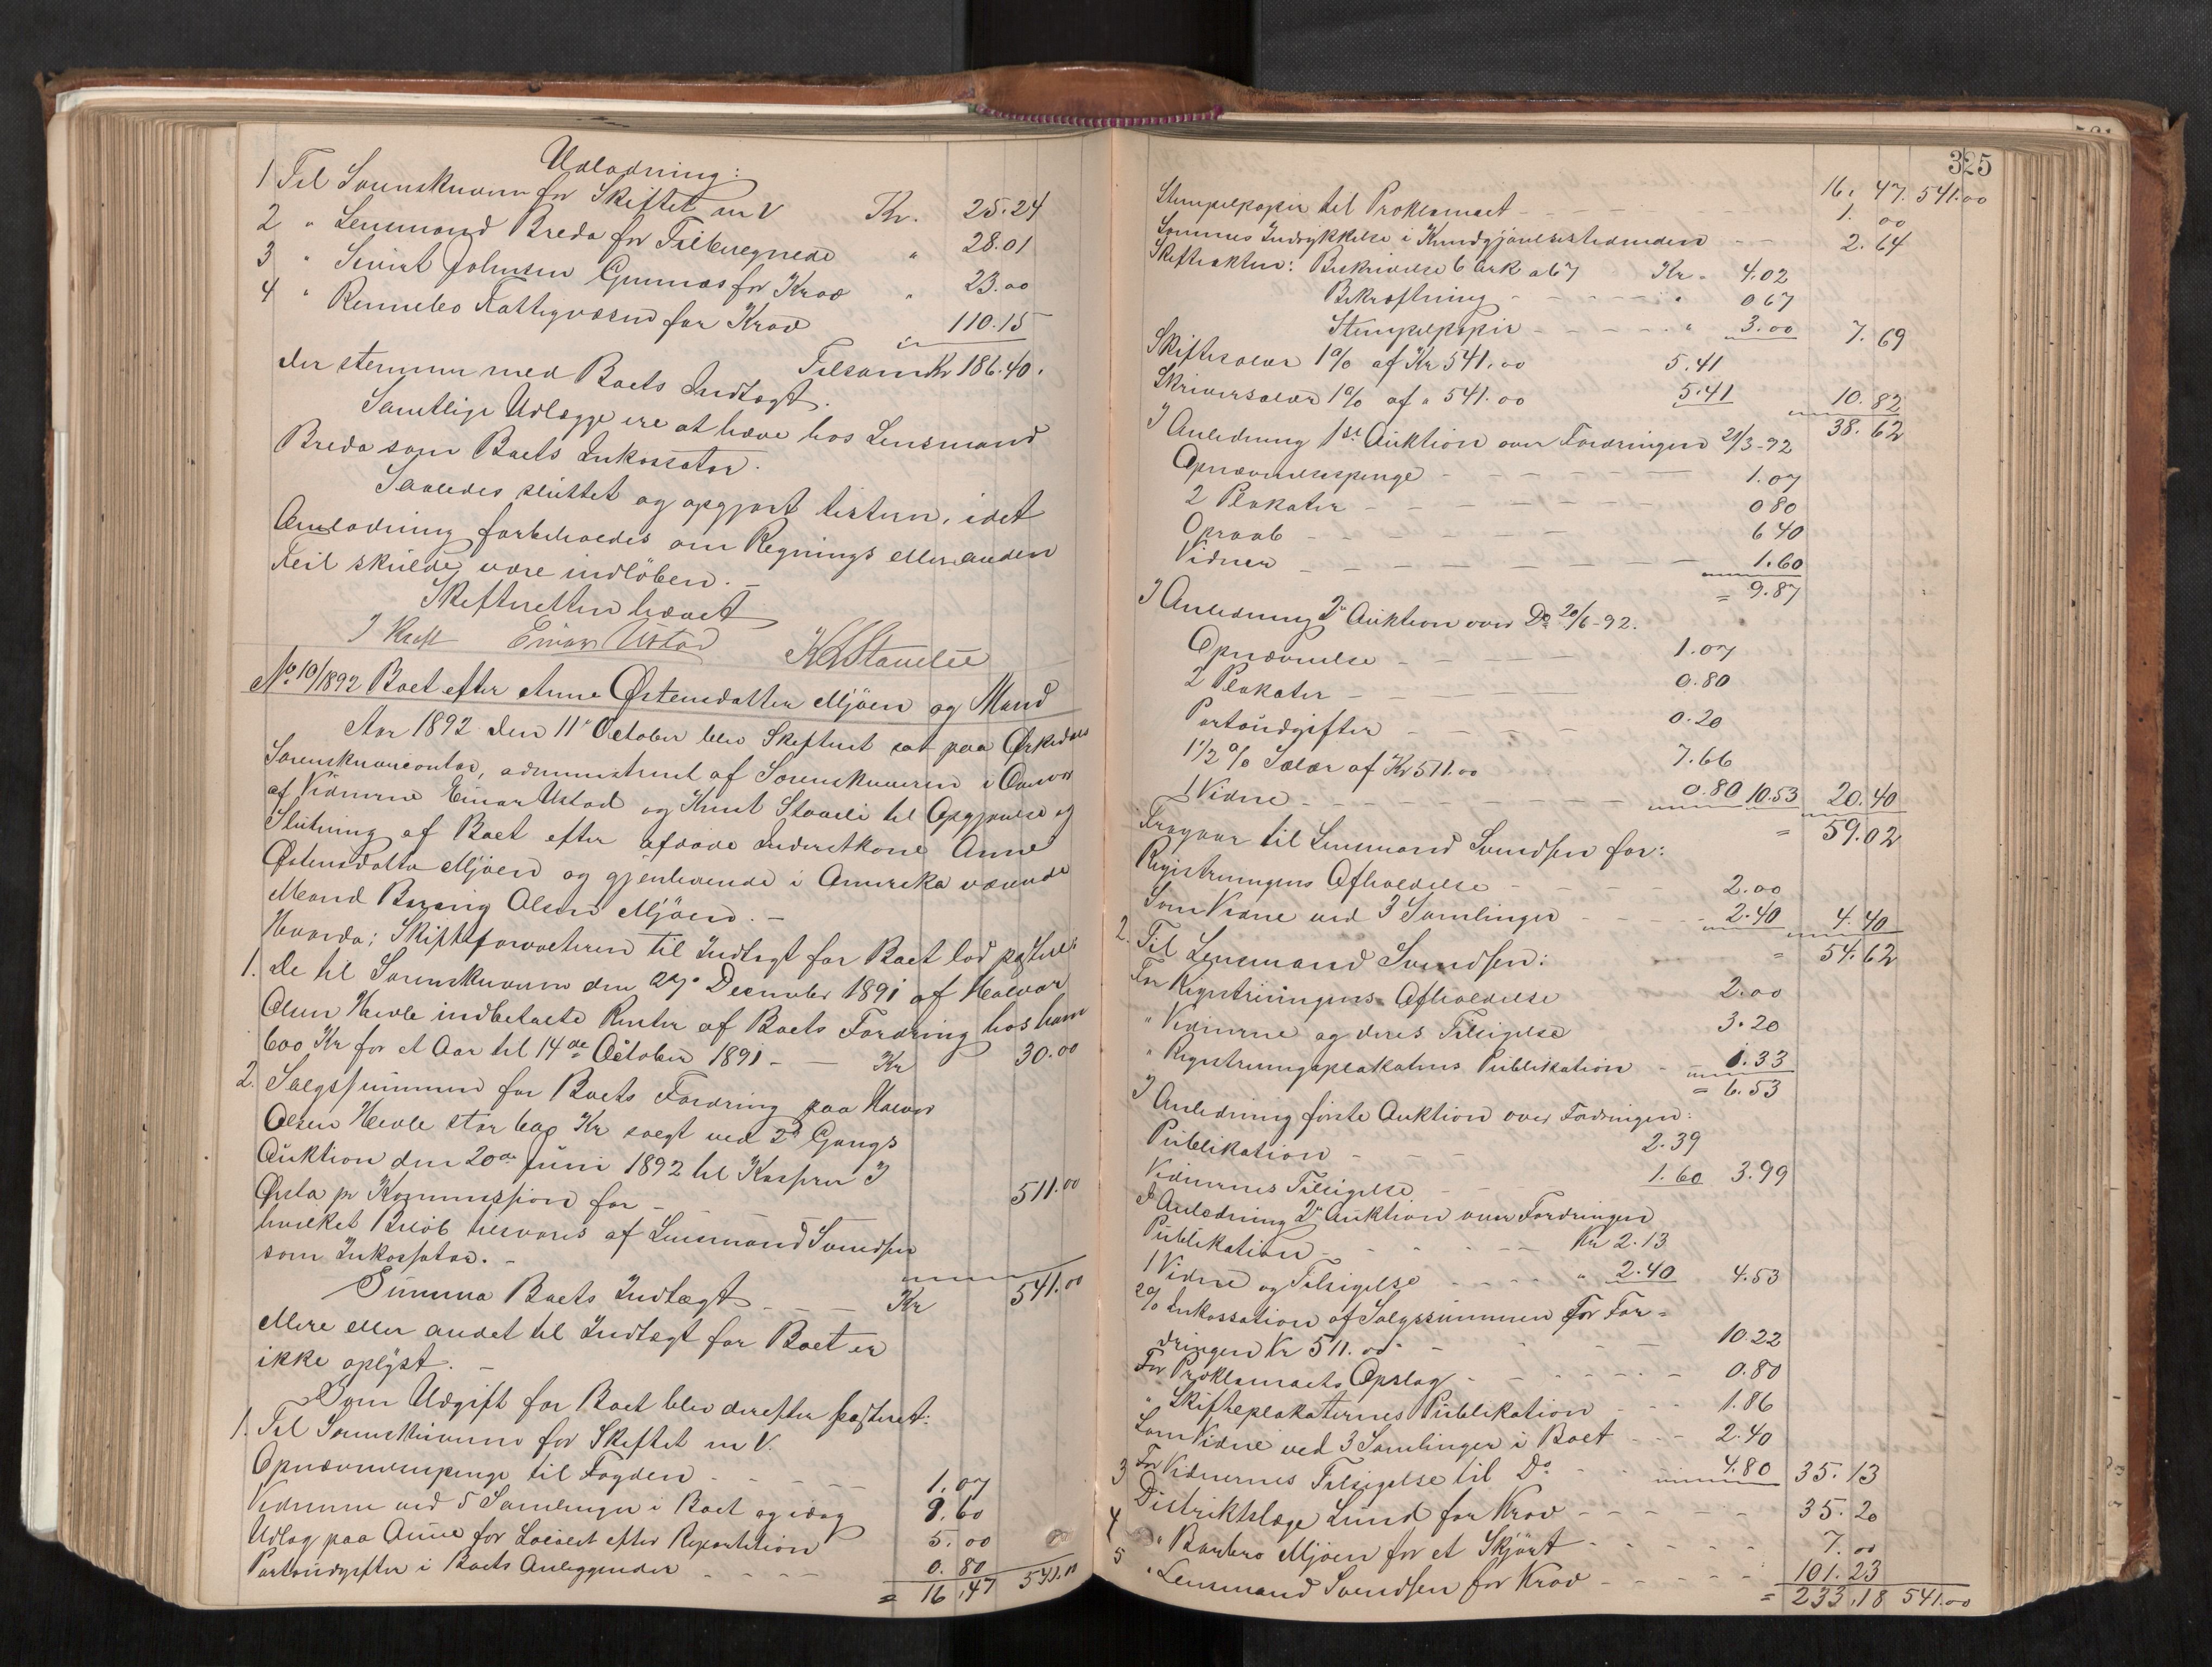 Udlodning:
1 Til Sorenskriveren for Skiftet m V Kr. 25.24
2 " Lensmand Breda for Tilberegnede " 28.01
3 " Sivert Johnsen Gunnæs for Krav " 23.00
4 " Rennebo Fattigvæsen for Krav 110.15
Tilsam Kr 186.40.
der stemmer med Boets Indtægt.
Samtlige Udlægge ere at hæve hos Lensmand
Breda som Boets Inkassator.
Saaledes sluttet og opgjort testeres, idet
Anledning forbeholdes om Regnings eller anden
Feil skulde være indløben. -
Skifteretten hævet
J Kraft Einar Ustad K Staveli
No 10/1892 Boet efter Anne Østensdatter Mjöen og Mand
Aar 1892 den 11te October blev Skifteret sat paa Örkedals
Sorenskrivercontor, administreret af Sorenskriveren i Overvær
af Vidnerne Einar Ustad og Knut Staveli til Opgjørelse og
Slutning af Boet efter afdøde Inderstkone Anne
Østensdatter Mjöen og gjenlevende i Amerika værende
Mand Olsen Mjöen. -
Hvorda: Skifteforvalteren til Indtægt for Boet lod postere:
1. De til Sorenskriveren den 27de December 1891 af Halvor
Olsen Hevle indbetalte Renter af Boets Fordring hos ham
600 Kr for et Aar til 14de October 1891 - - Kr 30.00
2. Salgssummen for Boets Fordring paa Halvor
Olsen Hevle stor 600 Kr solgt ved 2den Gangs
Auktion den 20de Juni 1892 til Kasper J
Örsta pr Kommission for - - 511.00
hvilket Beløb tilsvares af Lensmand Svendsen
som Inkassator. -
Summa Boets Indtægt - - - Kr 541.00
Mere eller andet til Indtægt for Boet er
ikke oplyst. -
Som Udgift for Boet blev derefter posteret:
1. Til Sorenskriveren for Skiftet m V.
Opnævnelsespenge til Fogden - - - - 1.07
Vidnerne ved 5 Samlinger i Boet og idag 9.60
Udlæg paa Avise for Localet efter Repartition 5.00
Portoudgifter i Boets Anliggender - - - - 0.80
= 16.47 541.00
325
16. 47. 541.00
Stempelpapir til Proklamaet - - - - 1. 00
Sammes Indrykkelse i Kundgjørelsestidenden - - 2.64
Skifteakten: Beskrivelse 6 Ark a 67 Kr. 4.02
Bekræftning - - - - " 0 67
Stempelpapir - - - - " 3.00 7.69
Skiftesalær 1% af Kr 541.00 5.41
Skriversalær 1% af " 541.00 5.41 10.82
38.62
I Anledning 1ste Auktion over Fordringen 21/3-92
Opnævnelsespenge - - - - 1.07
2 Plakater - - - - 0 80
Opraab - - - - 6 40
Vidner - - - - 1.60
= 9.87
I Anledning 2den Auktion over Do 20/6-92.
Opnævnelse - - - 1.07
2 Plakater - - - 0.80
Portoudgifter - - - 0.20
1½ % Salær af Kr 511.00 7.66
1 Vidne - - - - 0.80 10.53 20.40
= 59.02
Fragaar til Lensmand Svendsen for:
Registreringens Afholdelse - - - 2.00
Som Vidne ved 3 Samlinger - - - 2.40 4.40
= 54.62
2. Til Lensmand Svendsen:
For Registreringens Afholdelse 2.00
" Vidnerne og deres Tilsigelse 3.20
" Registreringsplakatens Publikation - 1.33
= 6.53
I Anledning første Auktion over Fordringen:
Publikation - - - 2.39
Vidnernes Tilsigelse - - 1.60 3.99
I Anledning 2den Auktion over Fordringen
Publikation - - - - Kr 2.13
1 Vidne og Tilsigelse - - - " 2.40 4.53
2% Inkassation af Salgssummen for For=
dringen Kr 511.00 - - - - 10.22
For Proklamaets Opslag - - - - 0.80
" Skifteplakaternes Publikation - - 1.86
Som Vidne ved 3 Samlinger i Boet - - 2.40
For Vidnernes Tilsigelse til Do - - 4.80 35.13
3 Distriktslæge Lund for Krav - - - 35.20
4 " Barbro Mjöen for et Skjört - - - 7.00
5 " Lensmand Svendsen for Krav - - - 101.23
= 233.18 541.00